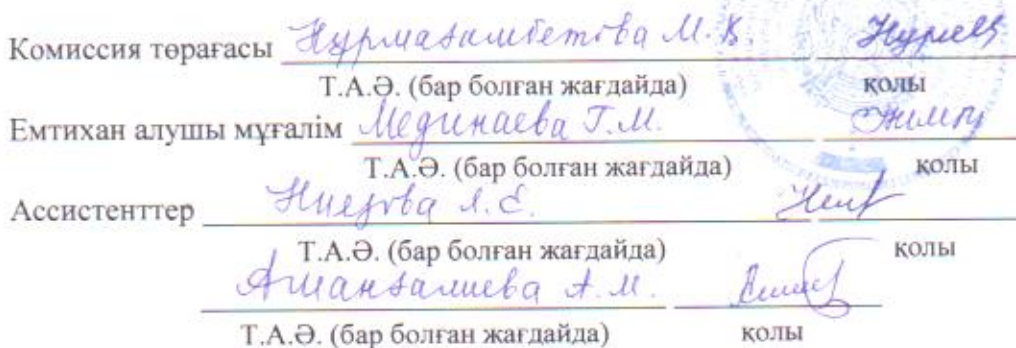 Комиссия төрағасы Нұрмағамбетова М.Қ.
Т.А.Ә. (бар болған жағдайда) қолы
Емтихан алушы мұғалім Мединаева Г.М.
Т.А.Ә. (бар болған жағдайда) қолы
Ассистенттер Ниезова Л.Е.
Т.А.Ә. (бар болған жағдайда) қолы
Аманғалиева А.М.
Т.А.Ә. (бар болған жағдайда) қолы